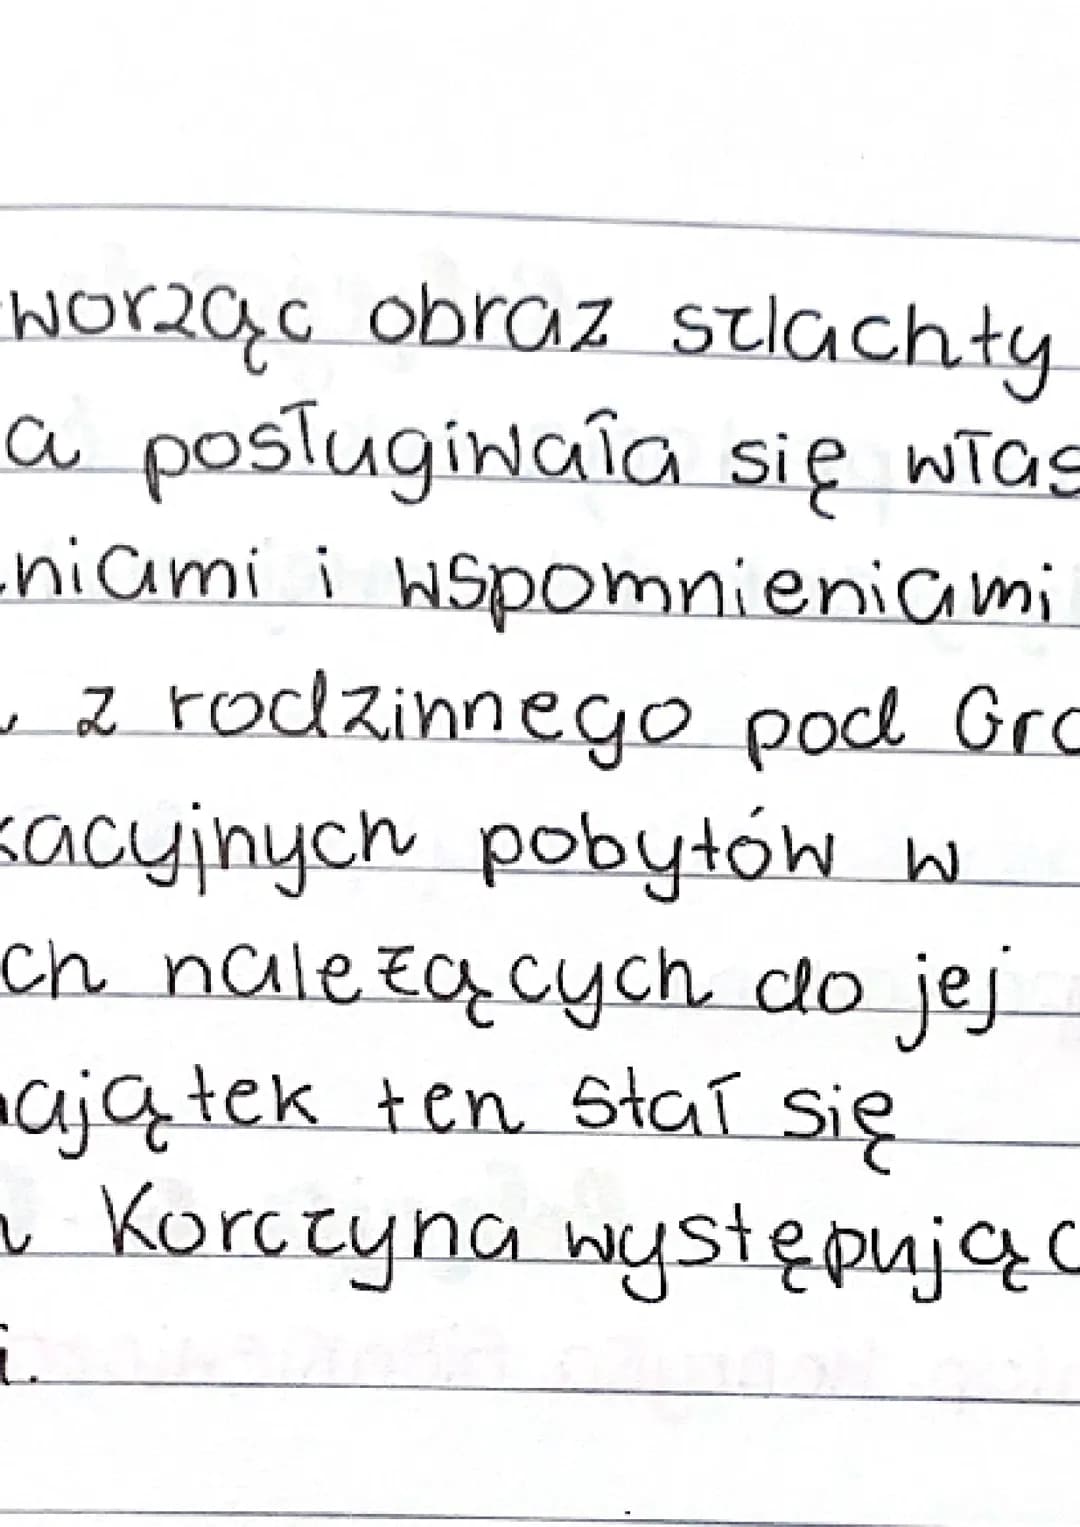 worząc obraz szlachty
a posługiwała się włas
niami i wspomnieniami
z rodzinnego pod Gro
kacyjnych pobytów w
ch należących do jej
ajątek ten stał się
Korczyna występując
i.